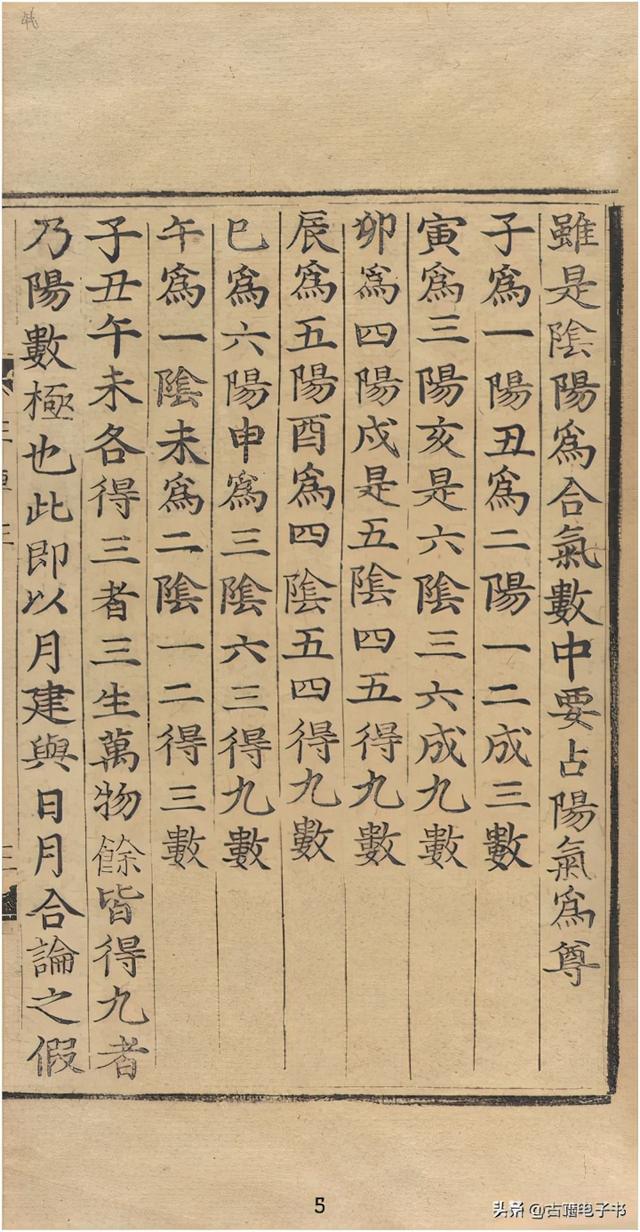 雖是陰陽爲合氣數中要占陽氣爲尊
子爲一陽丑爲二陽一二成三數
寅爲三陽亥是六陰三六成九數
卯爲四陽戍是五陰四五得九數
辰爲五陽酉爲四陰五四得九數
巳爲六陽申爲三陰六三得九數
午爲一陰未爲二陰一二得三數
子丑午未各得三者三生萬物餘皆得九者
乃陽數極也此即以月建與日月合論之假
5
头条@古籍电子书